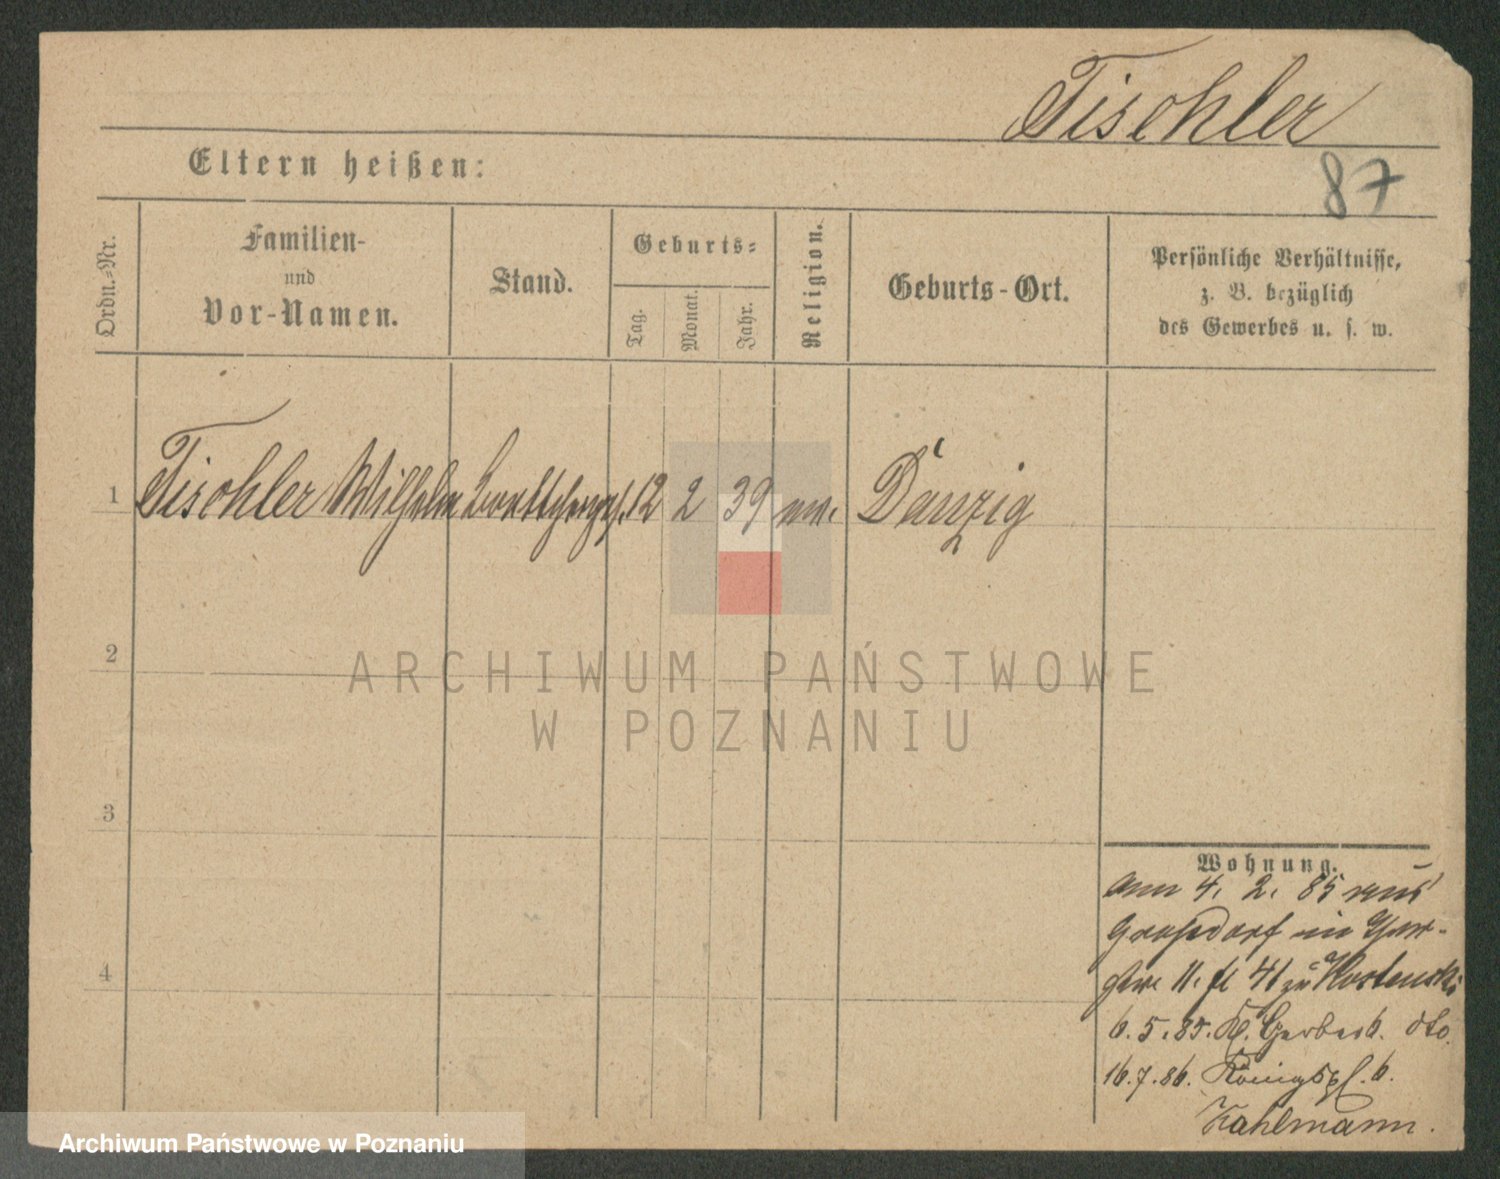 Tischler
87
Eltern heißen:
Ordn.-Nr.
Familien-
und
Vor-Namen.
Stand.
Geburts-
Tag.
Monat.
Jahr.
Religion.
Geburts-Ort.
Persönliche Verhältnisse,
z. B. bezüglich
des Gewerbes u. s. w.
1 Tischler Wilhelm 12 2 39 Danzig
2
3
4
ARCHIWUM PAŃSTWOWE
W POZNANIU
Wohnung.
am 4. 2. 85 aus
in
11. 41 zu
6. 5. 85. Gerber 6. dto.
16.7.86. Königspl. 6.
Kahlmann.
Archiwum Państwowe w Poznaniu